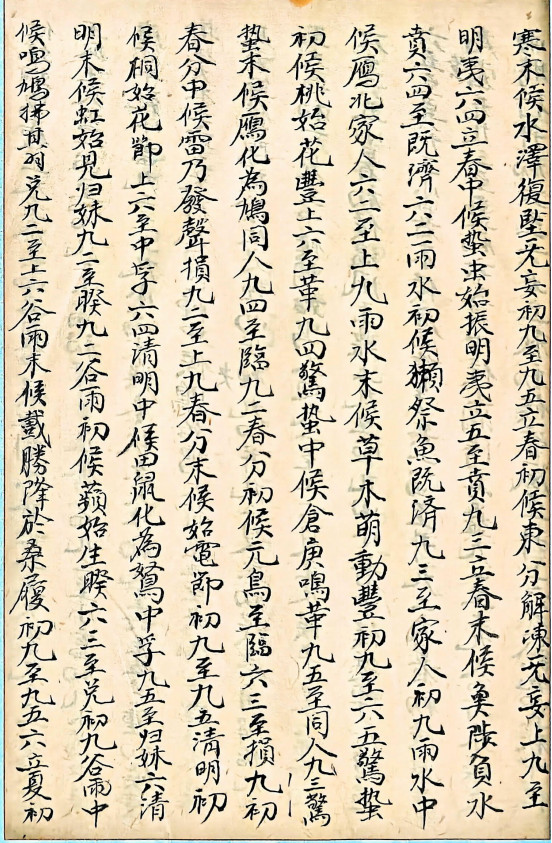 寒末候水澤復堅无妄初九至九五立春初候東分解凍无妄上九至
明夷六四立春中候蟄虫始振明夷立五至賁九三立春末候魚陟負水
賁六四至既濟六二雨水初候獺祭魚既済九三至家人初九雨水中
候鴈北家人六二至上九雨水末候草木萌動豐初九至六五驚蟄
初候桃始花豐上六至革九四驚蟄中候倉庚鳴革九五至同人九三驚
蟄末候鷹化為鳩同人九四至臨九二春分初候元鳥至臨六三至損九初
春分中候雷乃發聲損九二至上九春分末候始電節初九至九五清明初
候桐始花節上六至中孚六四清明中候田鼠化為鴽中孚九五至归妹六清
明末候虹始見归妹九二至睽九二谷雨初候蘋始生睽六三至兑初九谷雨中
候鳴鳩拂其羽兑九二至上六谷雨末候戴勝降於桑履初九至九五六立夏初